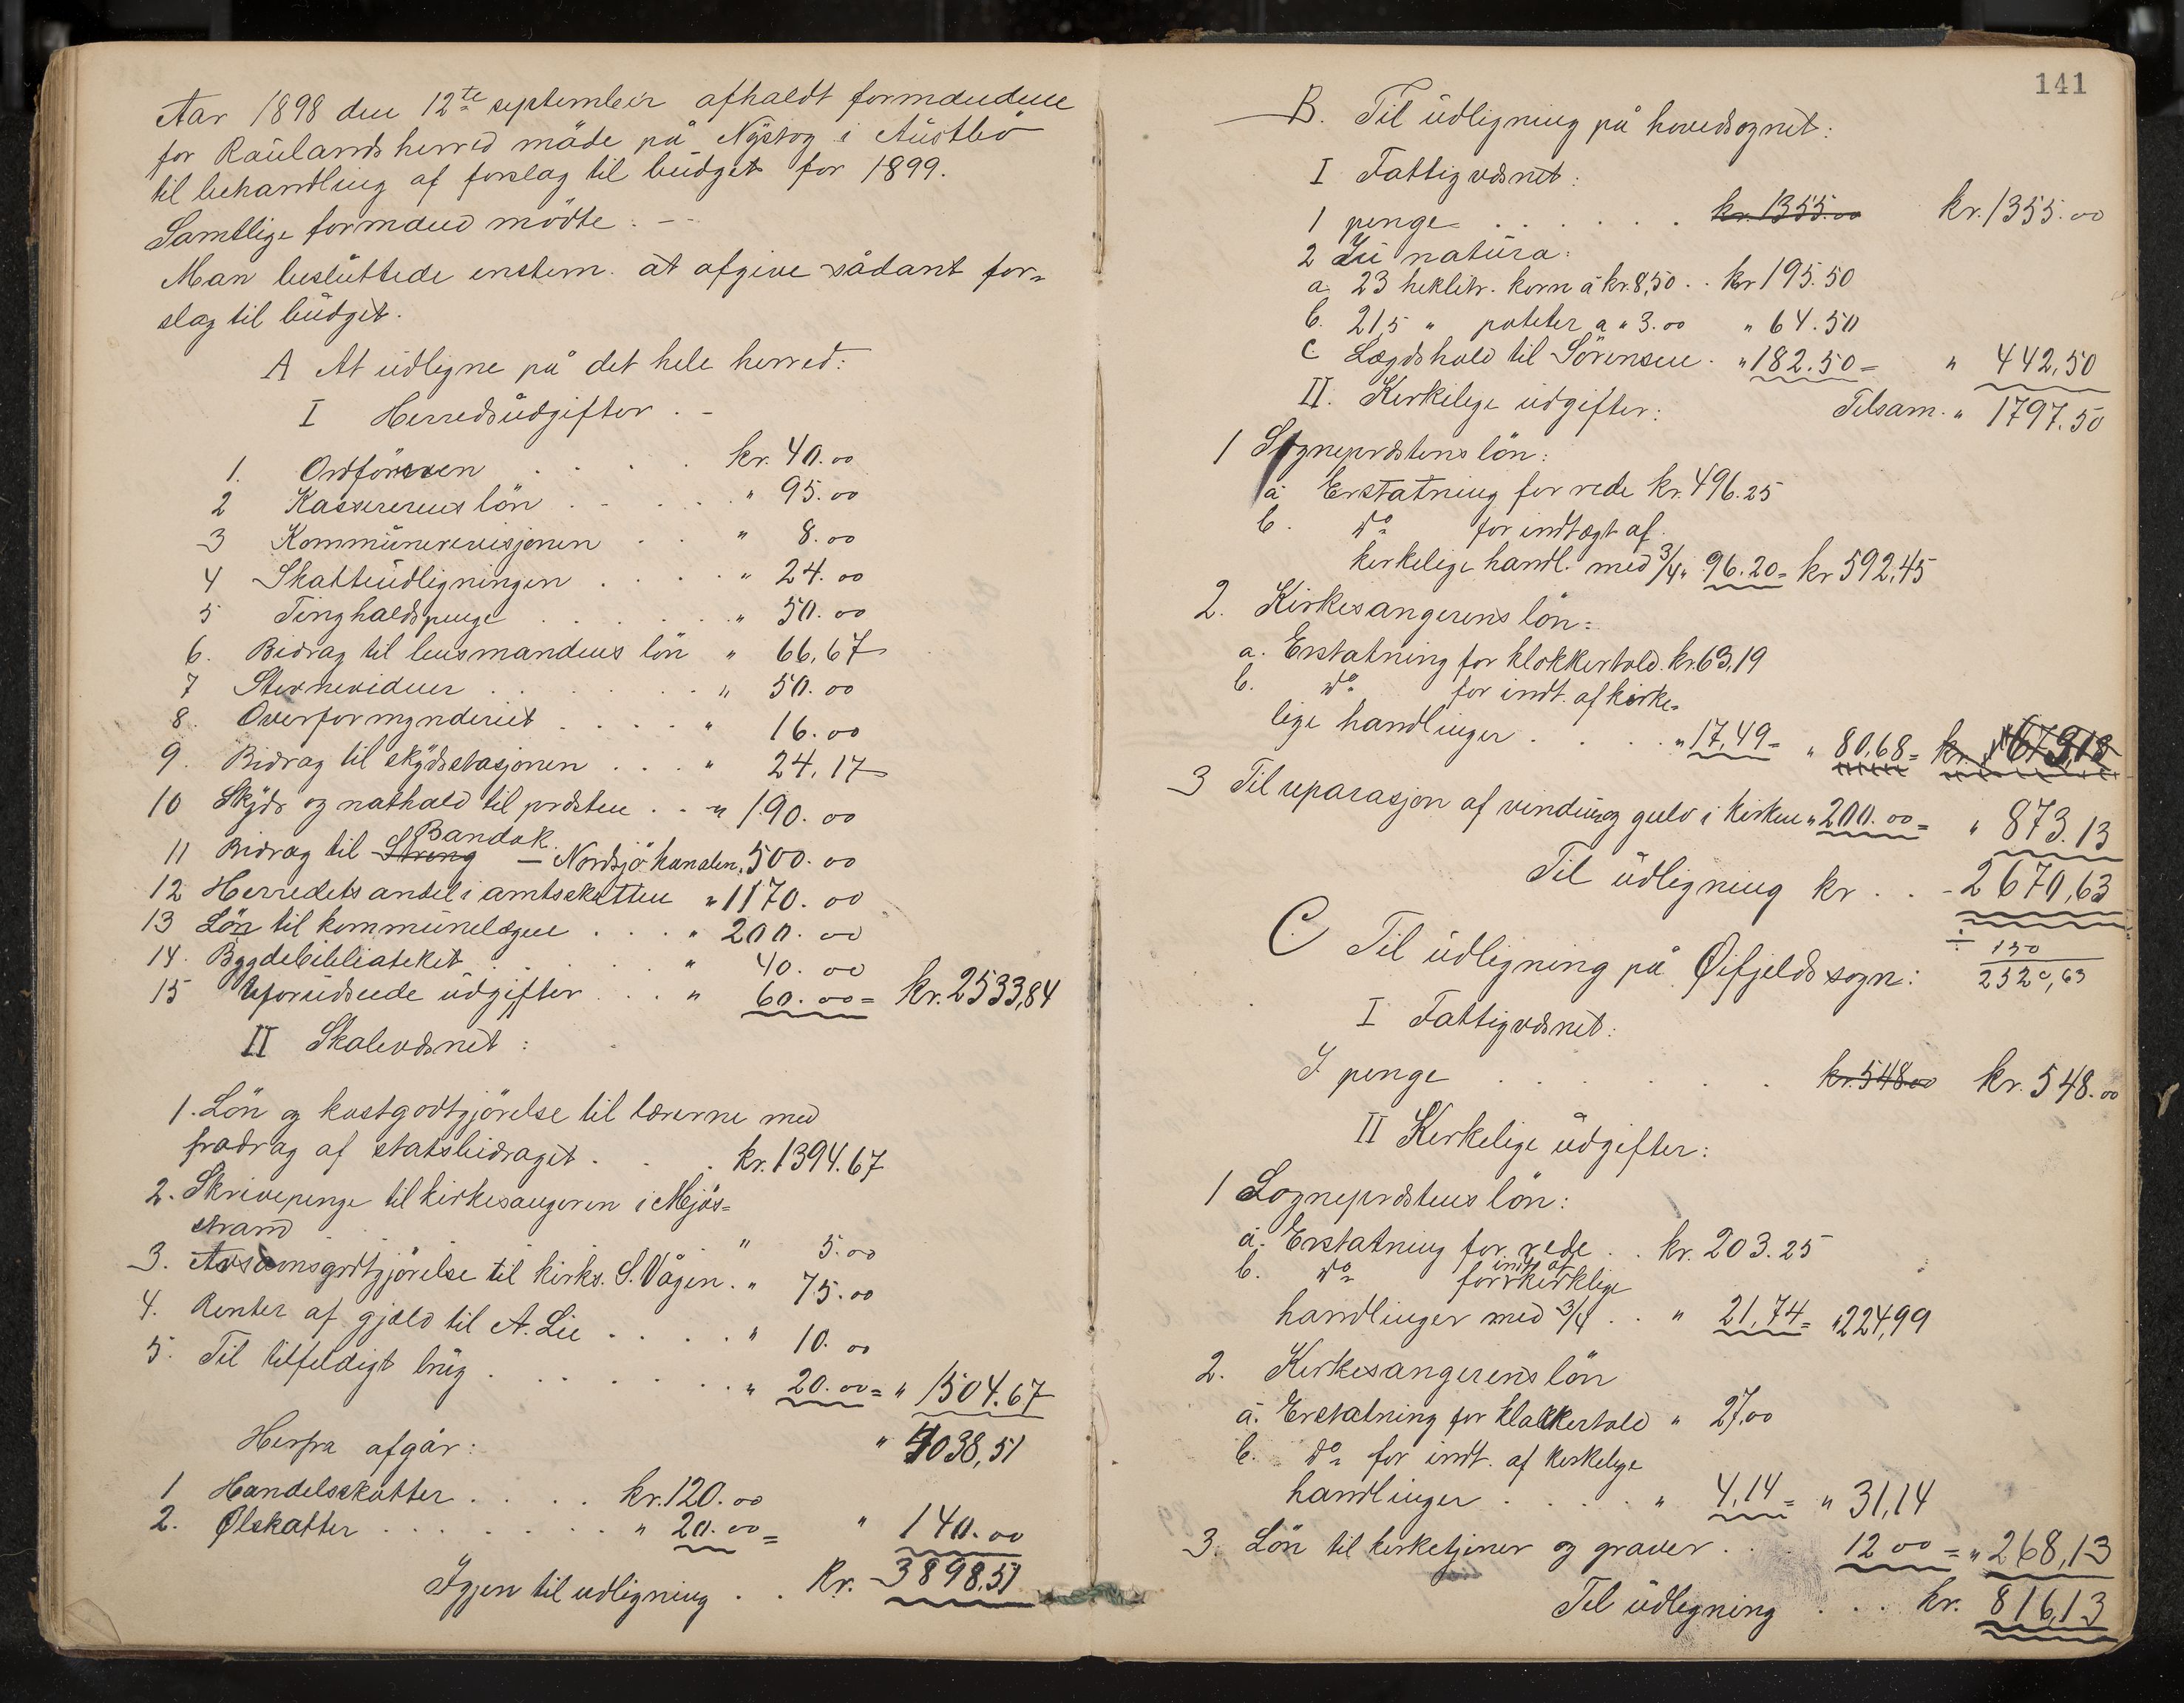 Aar 1898 den 12te september afholdt formændene
for Raulands herred møde på Nystog i Austbø
til behandling af forslag til budget for 1899.
Samtlige formænd mødte. —
Man besluttede enstem. at afgive sådant for-
slag til budget.
A At udligne på det hele herred:
I Herredsudgifter. –
1. Ordføreren . . . . kr. 40.00
2 Kassererens løn . . . . " 95.00
3 Kommunerevisjonen . . " 8.00
4 Skatteudligningen . . . . " 24.00
5 Tingholdspenge . . . . . . " 50.00
6. Bidrag til lensmandens løn " 66,67
7 Stevnevidner . . . . . . " 50.00
8. Overformynderiet . . . . " 16.00
9. Bidrag til skydsstasjonen . . . " 24,17
10 Skyds og nathold til præsten . . " 190.00
Bandak
11 Bidrag til Streng — Nordsjø kanalen " 500.00
12 Herredets andel i amtsskatten " 1170.00
13 Løn til kommunelægen . . . . " 200.00
14. Bygdebiblioteket . . . . . . " 40.00
15 Uforudseede udgifter . . . " 60.00 = kr. 2533,84
II Skolevæsnet :
1. Løn og kostgodtgjørelse til lærerne med
fradrag af statsbidraget . . . kr. 1394.67
2. Skrivepenge til kirkesangeren i Mjøs-
strand . . . . . . " 5.00
3. Avsavnsgodtgjørelse til kirks. S. Vågen . " 75.00
4. Renter af gjæld til A. Lie . . . . " 10.00
5. Til tilfeldigt brug . . . . . . . " 20.00 = " 1504.67
" 4038,51
Herfra afgår:
1 Handelsskatter . . . . kr. 120.00
2. Ølskatter . . . . . . . " 20.00 = " 140.00
Igjen til udligning . . Kr. 3898,51
141
B. Til udligning på hovedsognet:
I Fattigvæsnet:
1 penge . . . . . . kr. 1355.00 kr. 1355.00
2 In natura:
a. 23 hektlitr. korn a kr. 8,50 . . kr 195.50
b. 21,5 " poteter a " 3.00 " 64.50
c Lægdshold til Sørensen . " 182.50 = " 442,50
Tilsam. " 1797.50
II. Kirkelige udgifter:
1 Sognepræstens løn:
a Erstatning for rede kr. 496.25
b. do for indtægt af
kirkelige handl. med 3/4 " 96.20 = kr 592,45
2. Kirkesangerens løn:
a. Erstatning for klokkertold. kr. 63,19
b. do for indt. af kirke-
lige handlinger . . . . " 17,49 = " 80,68 = kr. 673,13
3 Til reparasjon af vindu og gulv i kirken " 200.00 = " 873.13
Til udligning kr . . 2670,63
÷ 150
2520,63
C Til udligning på Øifjelds sogn:
I Fattigvæsnet:
I penge . . . . . . kr. 548.00 kr. 548.00
II Kirkelige udgifter:
1 Sognepræstens løn:
a. Erstatning for rede . . kr. 203.25
indt. af
b. do for kirklige
handlinger med 3/4 . . " 21,74 = " 224,99
2. Kirkesangerens løn
a. Erstatning for klokkertold " 27,00
b. do for indt. af kirkelige
handlinger . . . . . " 4,14 = " 31,14
3. Løn til kirketjener og graver . . . 12 00 = " 268,13
Til udligning . . . kr. 816,13